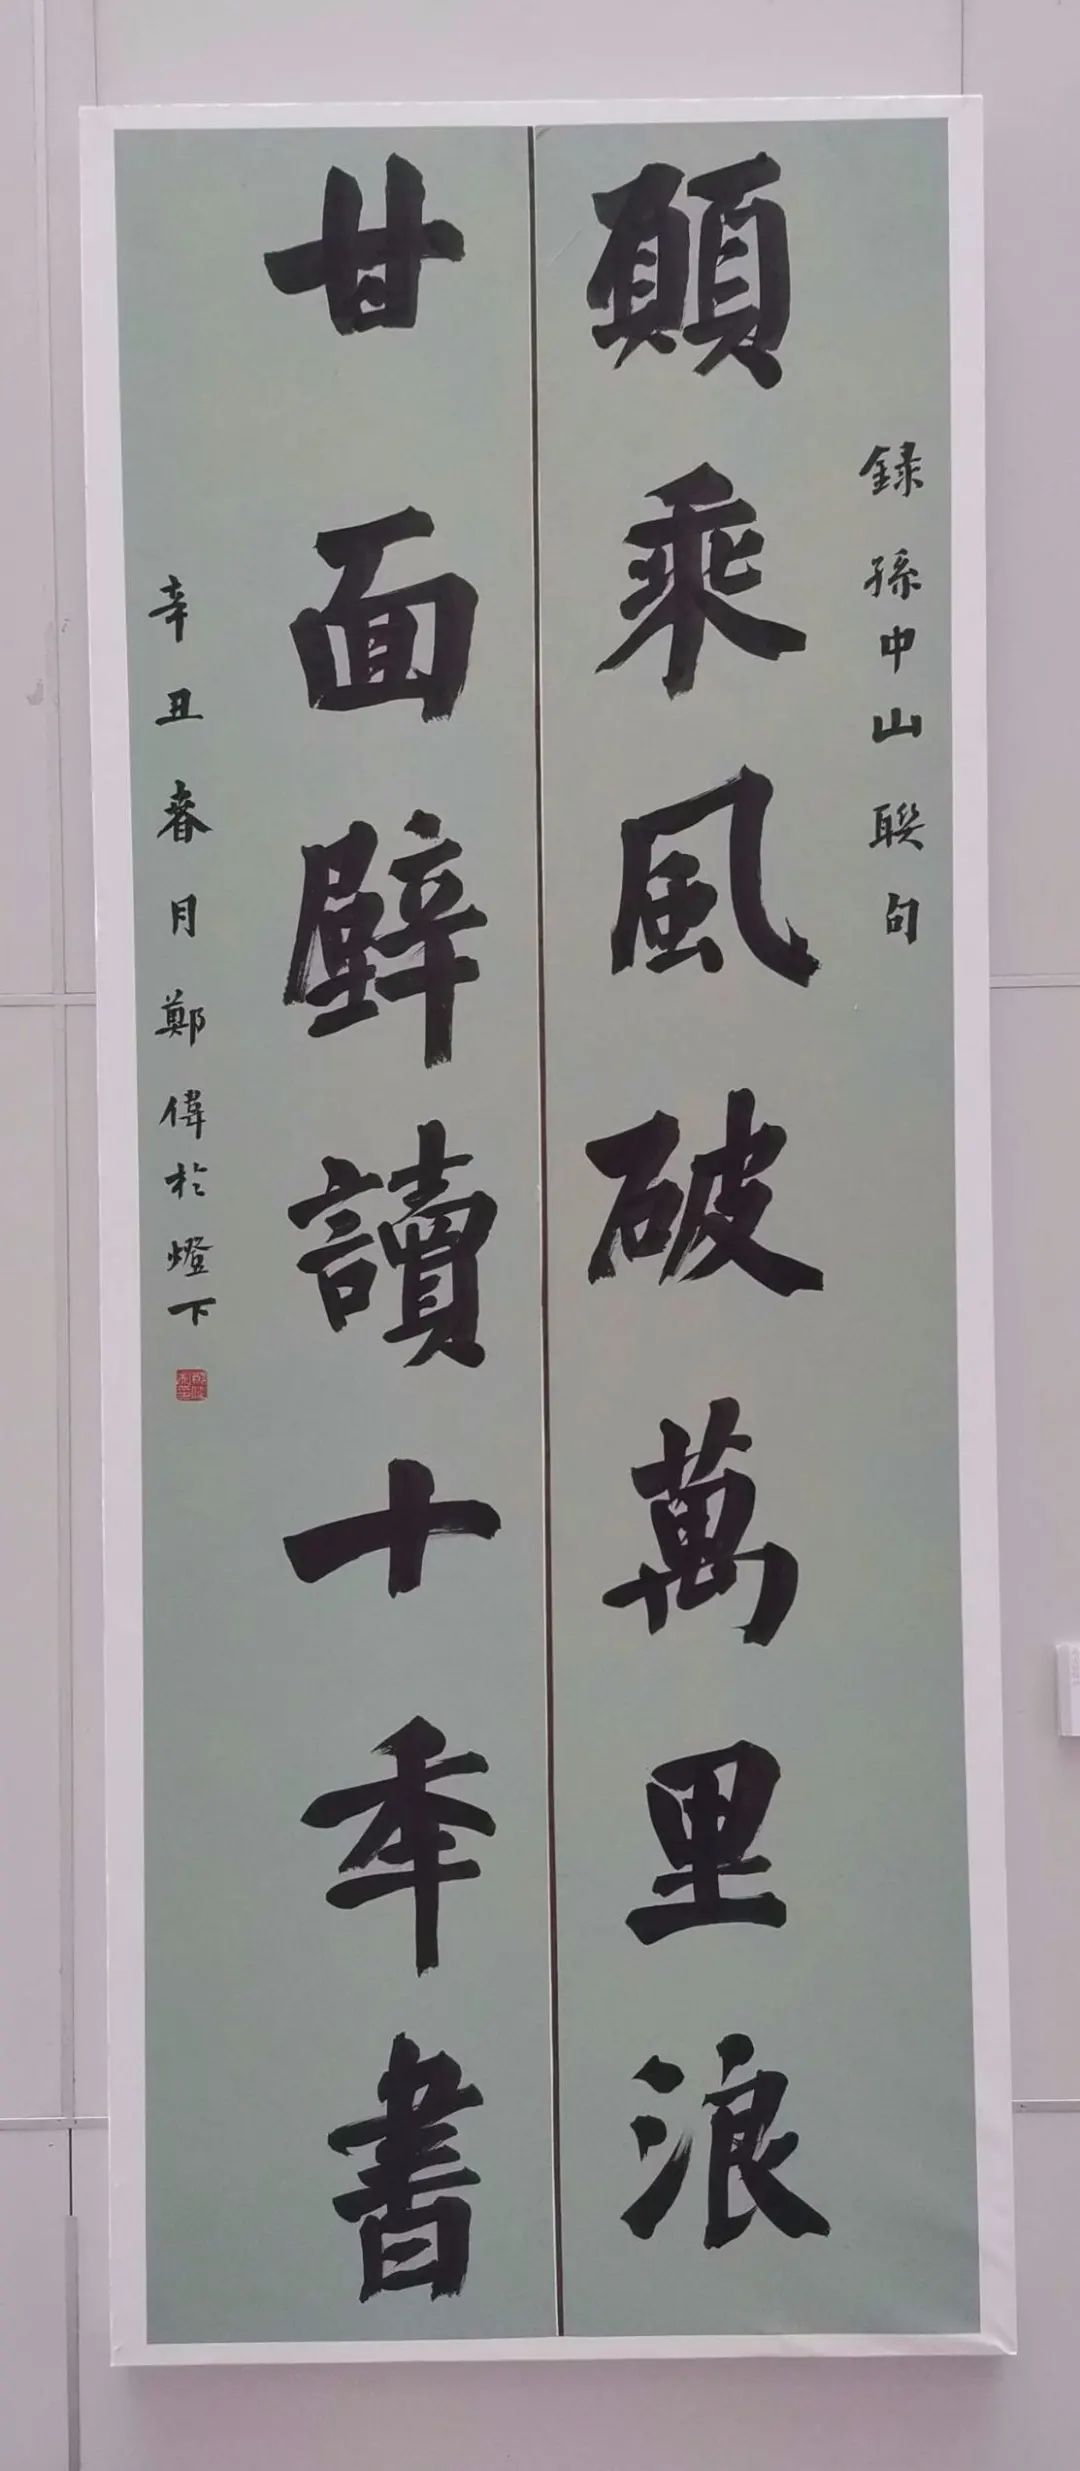 願乘風破萬里浪
錄孫中山聯句
甘面壁讀十年書
辛丑春月鄭偉於燈下